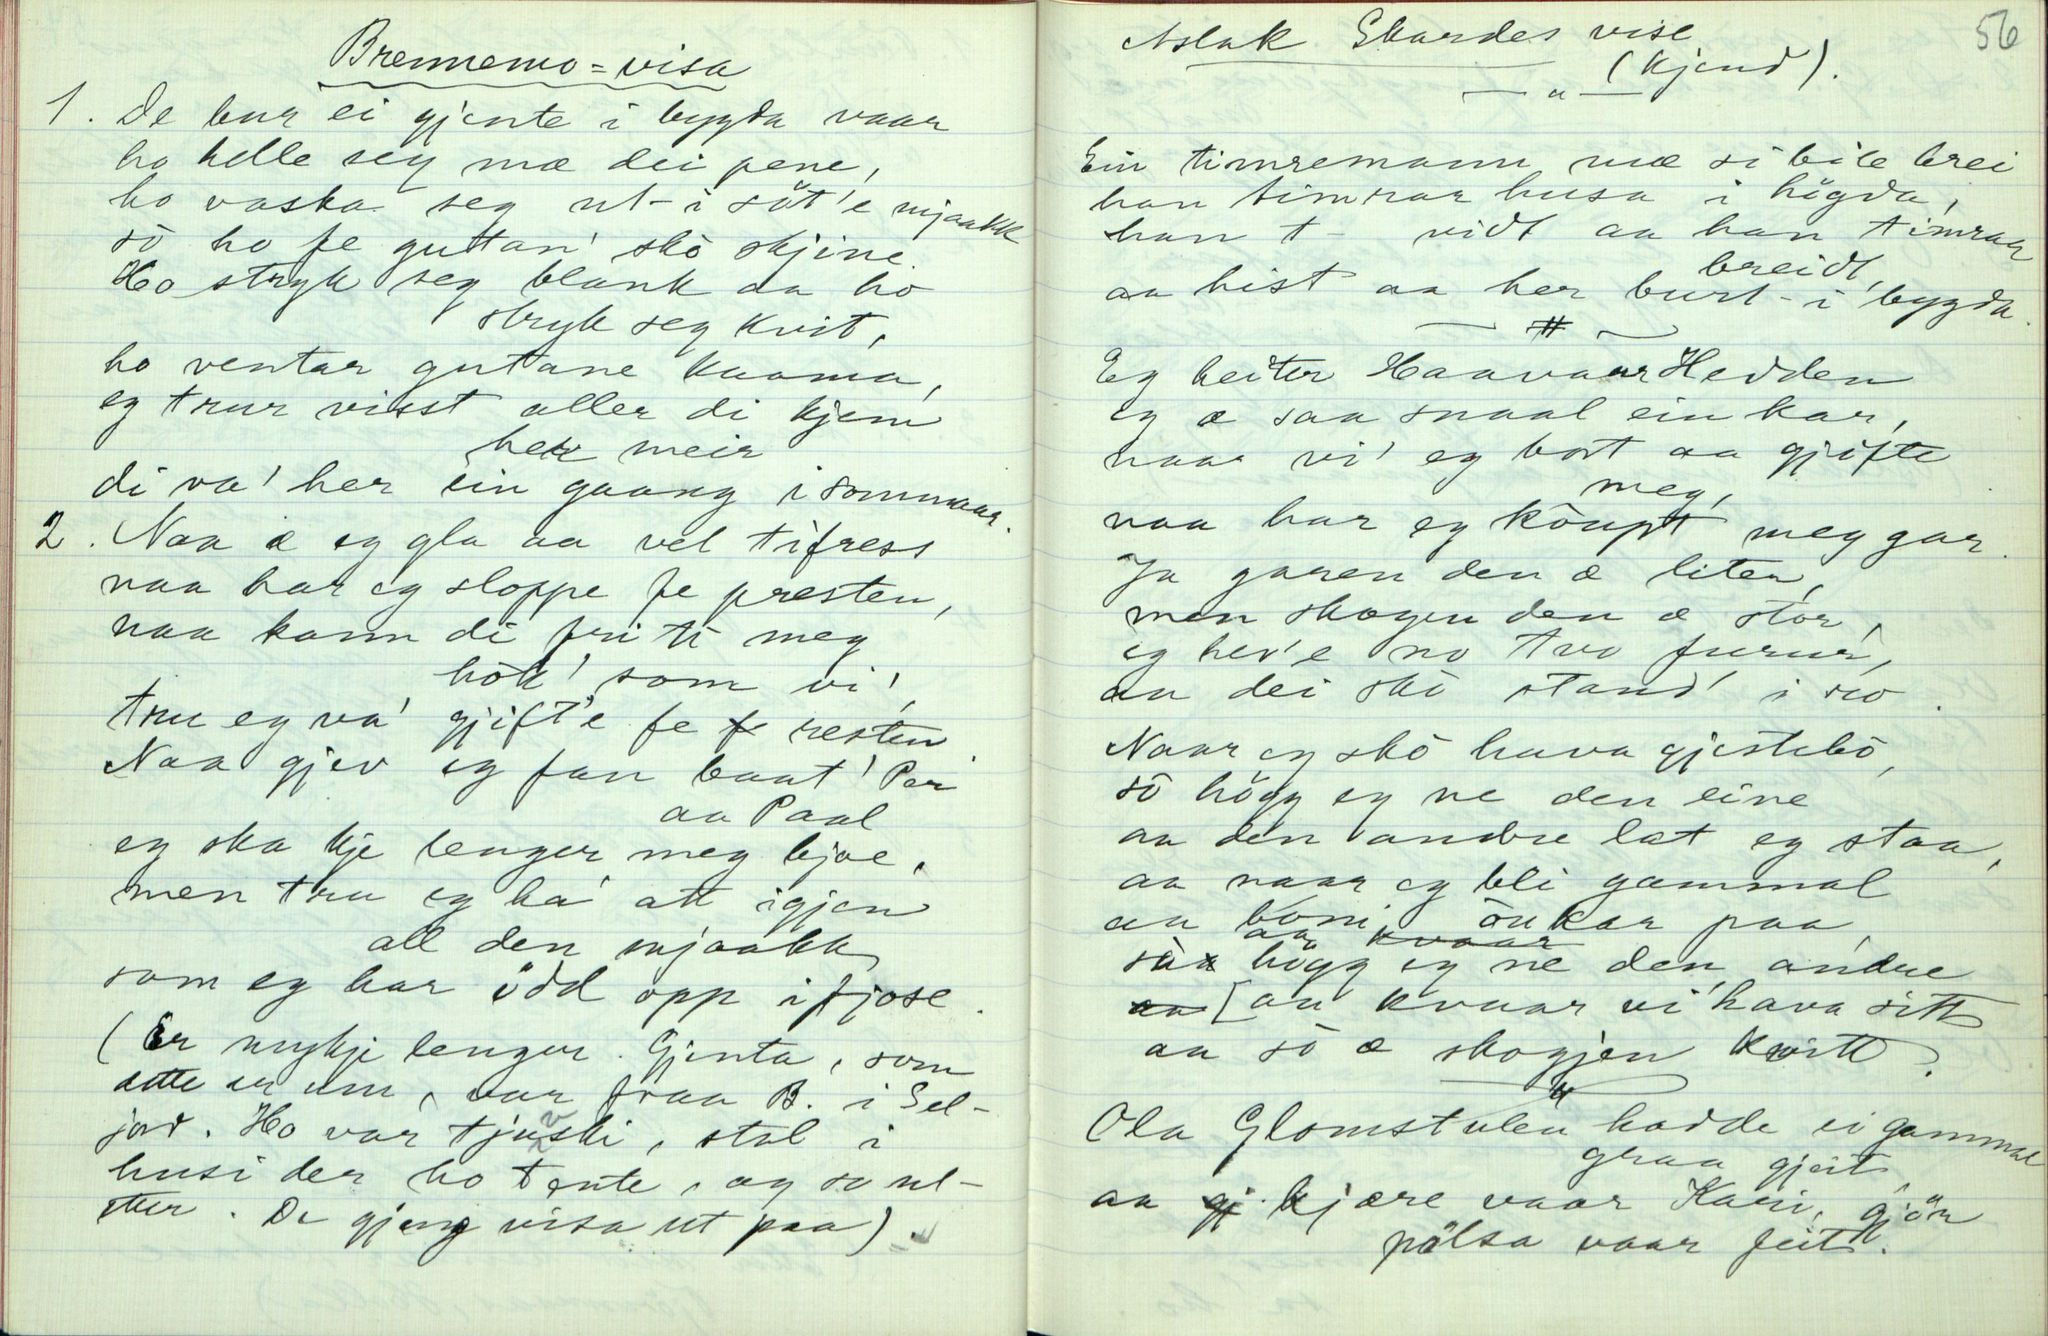 Brennemo=visa
1. De bur ei gjente i bygda vaar
ho helle seg mæ dei pene,
ho vaska seg ut-i söt'e mjaakk
sö ho fe gutan' skö skjine.
Ho stryk seg blank aa ho
stryk seg kvit,
ho ventar gutane kaama,
eg trur visst aller di kjem
her meir
di va' her ein gaang i sommaar.
2. Naa æ eg gla aa vel tifress
naa har eg sloppe fe presten,
naa kann di fri ti meg
hök' som vi',
tru eg va' gjift'e fe resten.
Naa gjev eg fan baat' Per
aa Paal
eg ska kje lenger meg bjoe,
men tru eg ha' att igjen
all den mjaakk
som eg har ödd opp i fjose.
(Er mykje lenger. Gjenta, som
dette er um, var fraa B. i Sel-
jord. Ho var tjuvski, stal i
husi der ho tente, og so ut-
etter. De gjeng visa ut paa).
56
Aslak Skardes vise
(kjend).
Ein timremann mæ si bile brei
han timrar husa i högda,
han t- vidt aa han timrar
breidt,
aa hist aa her burt-i bygda.
Eg heiter Haavaar Hedden
eg æ saa snaal ein kar,
naar vi' eg bort aa gjifte
meg,
naa har eg köupt meg gar.
Ja garen den æ liten,
men skogen den æ stor,
eg hev'e no tvo furur,
aa dei skö stand' i ro.
Naar eg skö hava gjestebö,
sö högg eg ne den eine
aa den andre lat eg staa,
aa naar eg bli gammal
aa böni öukar paa,
aa kvaar
sö högg eg ne den andre
aa [aa kvaar vi' hava sitt
aa sö æ skogjen kvitt.
Ola Glomstulen hadde ei gammal
graa gjeit,
aa kjære vaar Kari, gjör
pölsa vaar feit.